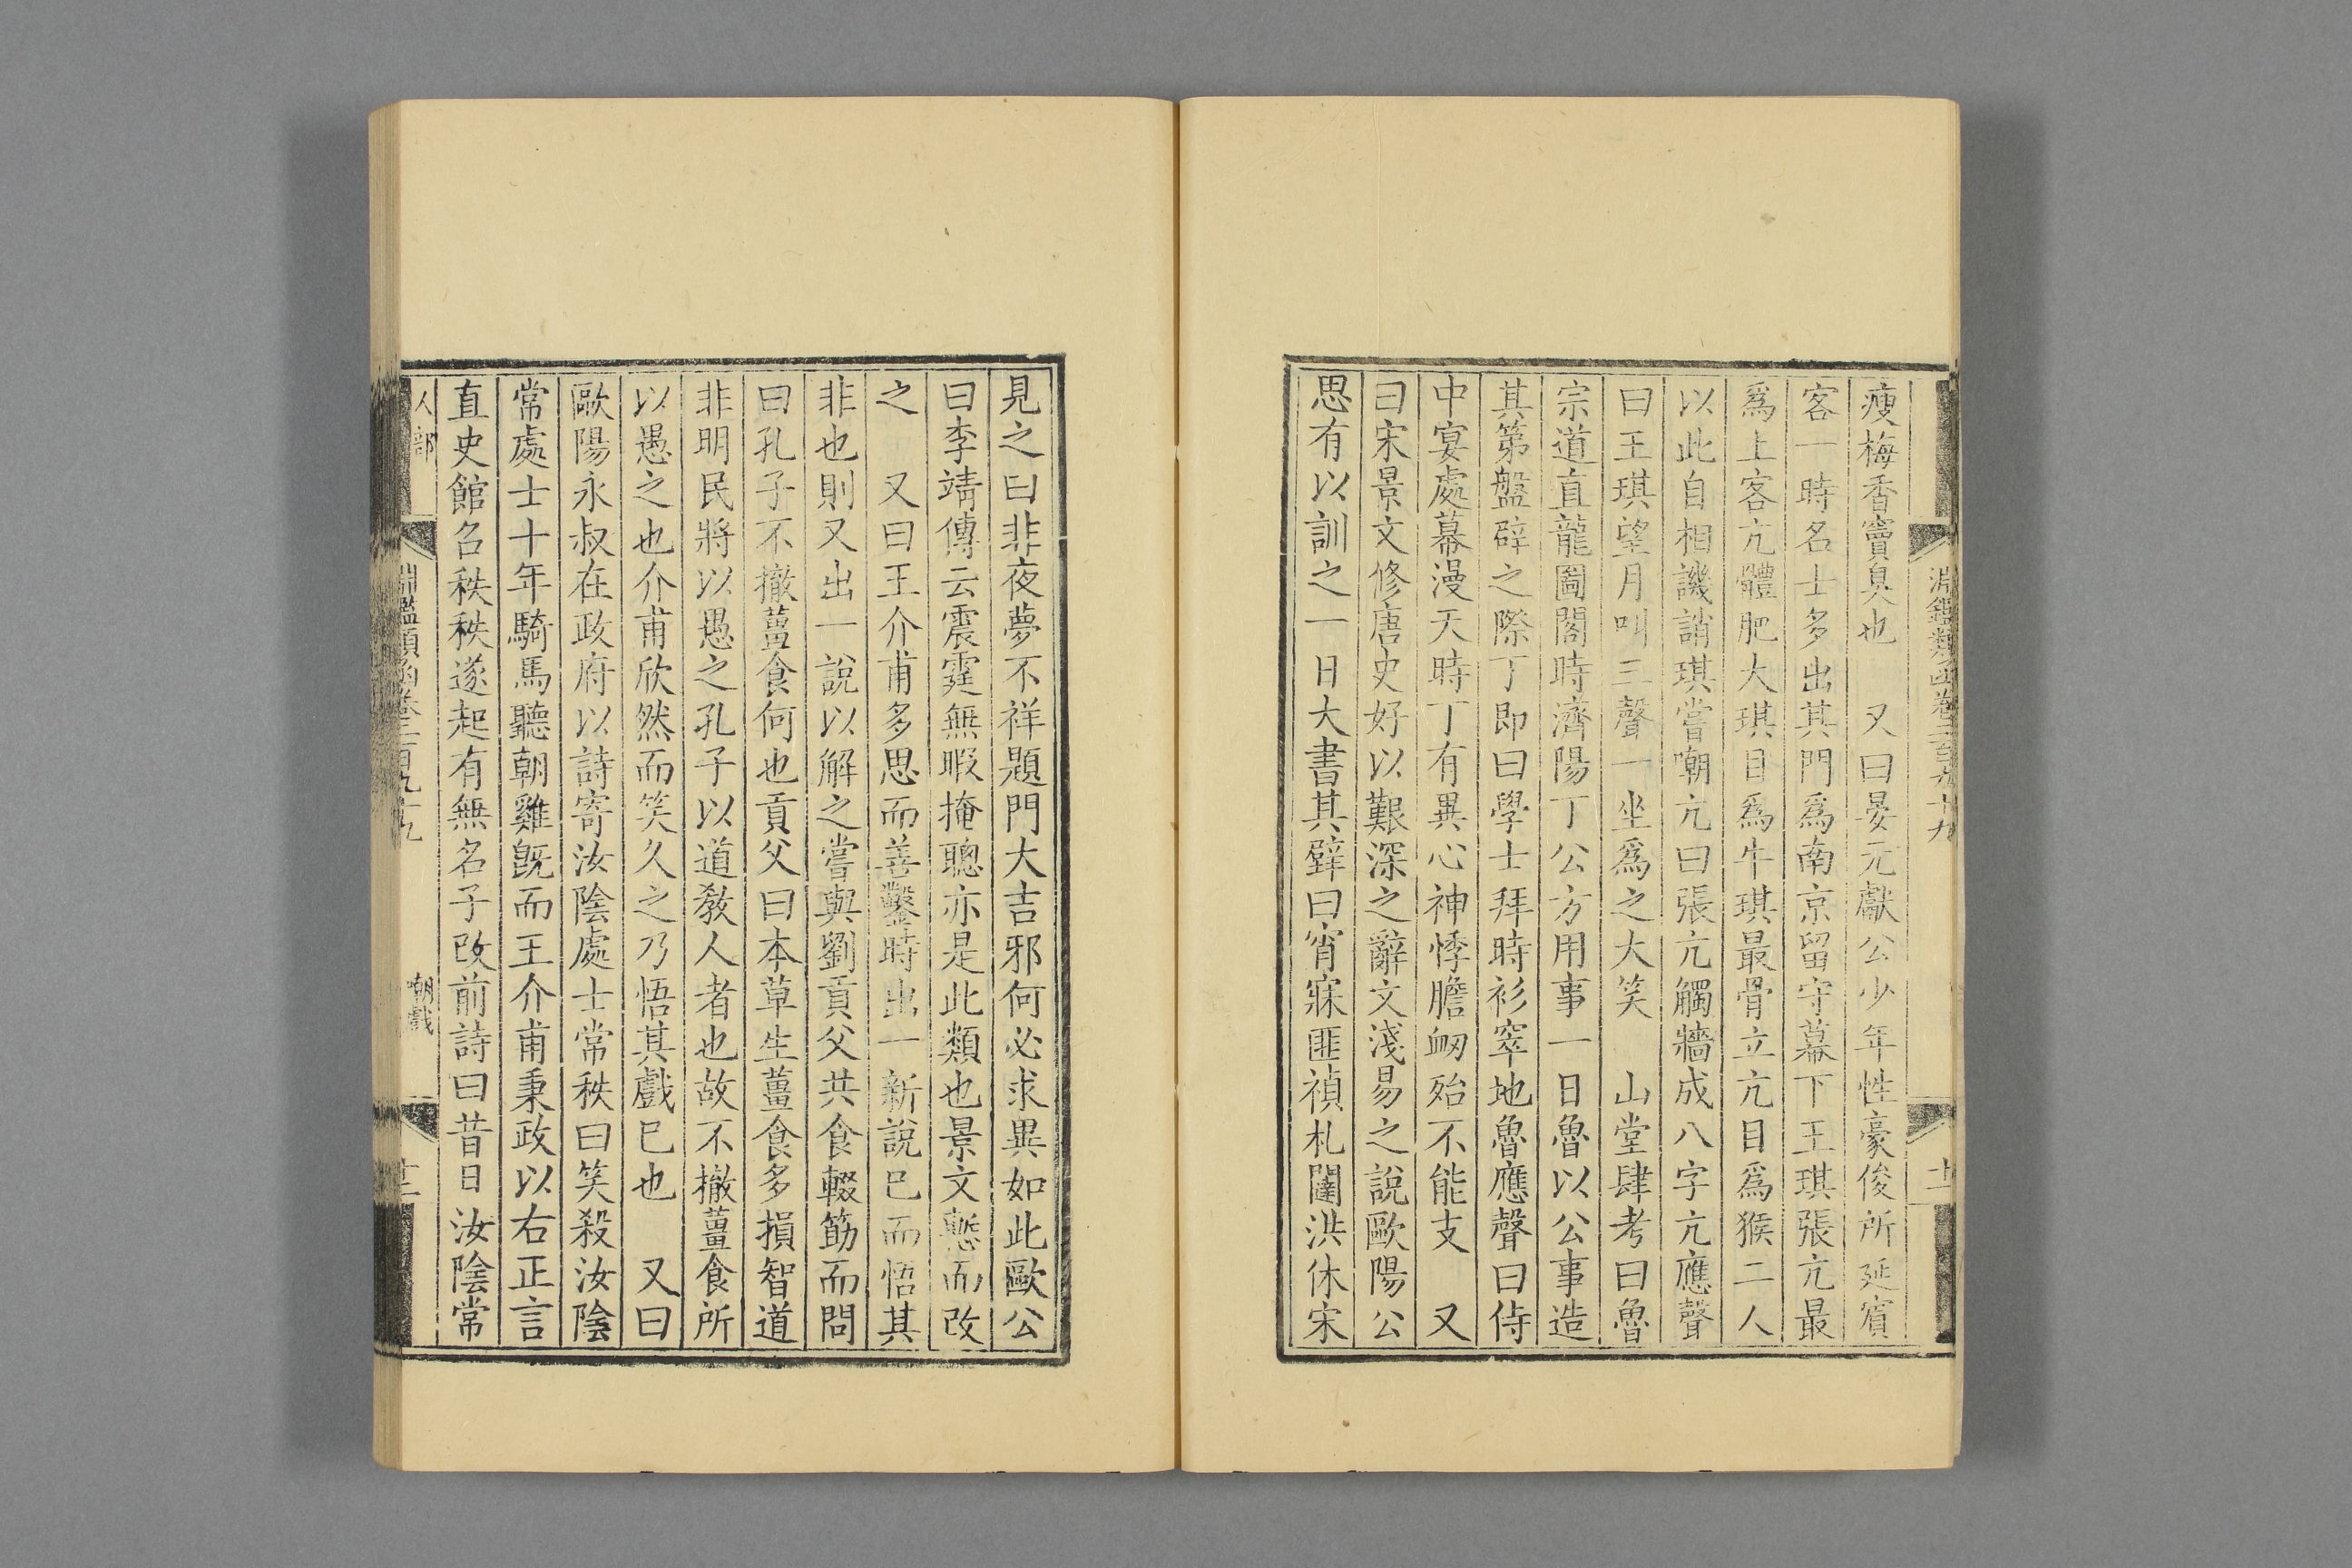 淵鑑類函卷二百九十九
瘦梅香竇臭也　又曰晏元獻公少年性豪俊所延賓
客一時名士多出其門爲南京留守幕下王琪張亢最
爲上客亢體肥大琪目爲牛琪最骨立亢目爲猴二人
以此自相譏誚琪嘗嘲亢曰張亢觸牆成八字亢應聲
曰王琪望月叫三聲一坐爲之大笑　山堂肆考曰魯
宗道直龍圖閣時濟陽丁公方用事一日魯以公事造
其第盤辟之際丁即曰學士拜時衫窣地魯應聲曰侍
中宴處幕漫天時丁有異心神悸膽衂殆不能支　又
曰宋景文修唐史好以艱深之辭文淺易之說歐陽公
思有以訓之一日大書其壁曰宵寐匪禎札闥洪休宋
見之曰非夜夢不祥題門大吉邪何必求異如此歐公
曰李靖傳云震霆無暇掩聰亦是此類也景文慙而改
之　又曰王介甫多思而善鑿時出一新說已而悟其
非也則又出一說以解之嘗與劉貢父共食輟筯而問
曰孔子不撤薑食何也貢父曰本草生薑食多損智道
非明民將以愚之孔子以道教人者也故不撤薑食所
以愚之也介甫欣然而笑久之乃悟其戲已也　又曰
歐陽永叔在政府以詩寄汝陰處士常秩曰笑殺汝陰
常處士十年騎馬聽朝雞旣而王介甫秉政以右正言
直史館召秩秩遂起有無名子改前詩曰昔日汝陰常
人部
淵鑑類函卷二百九十九
嘲戲